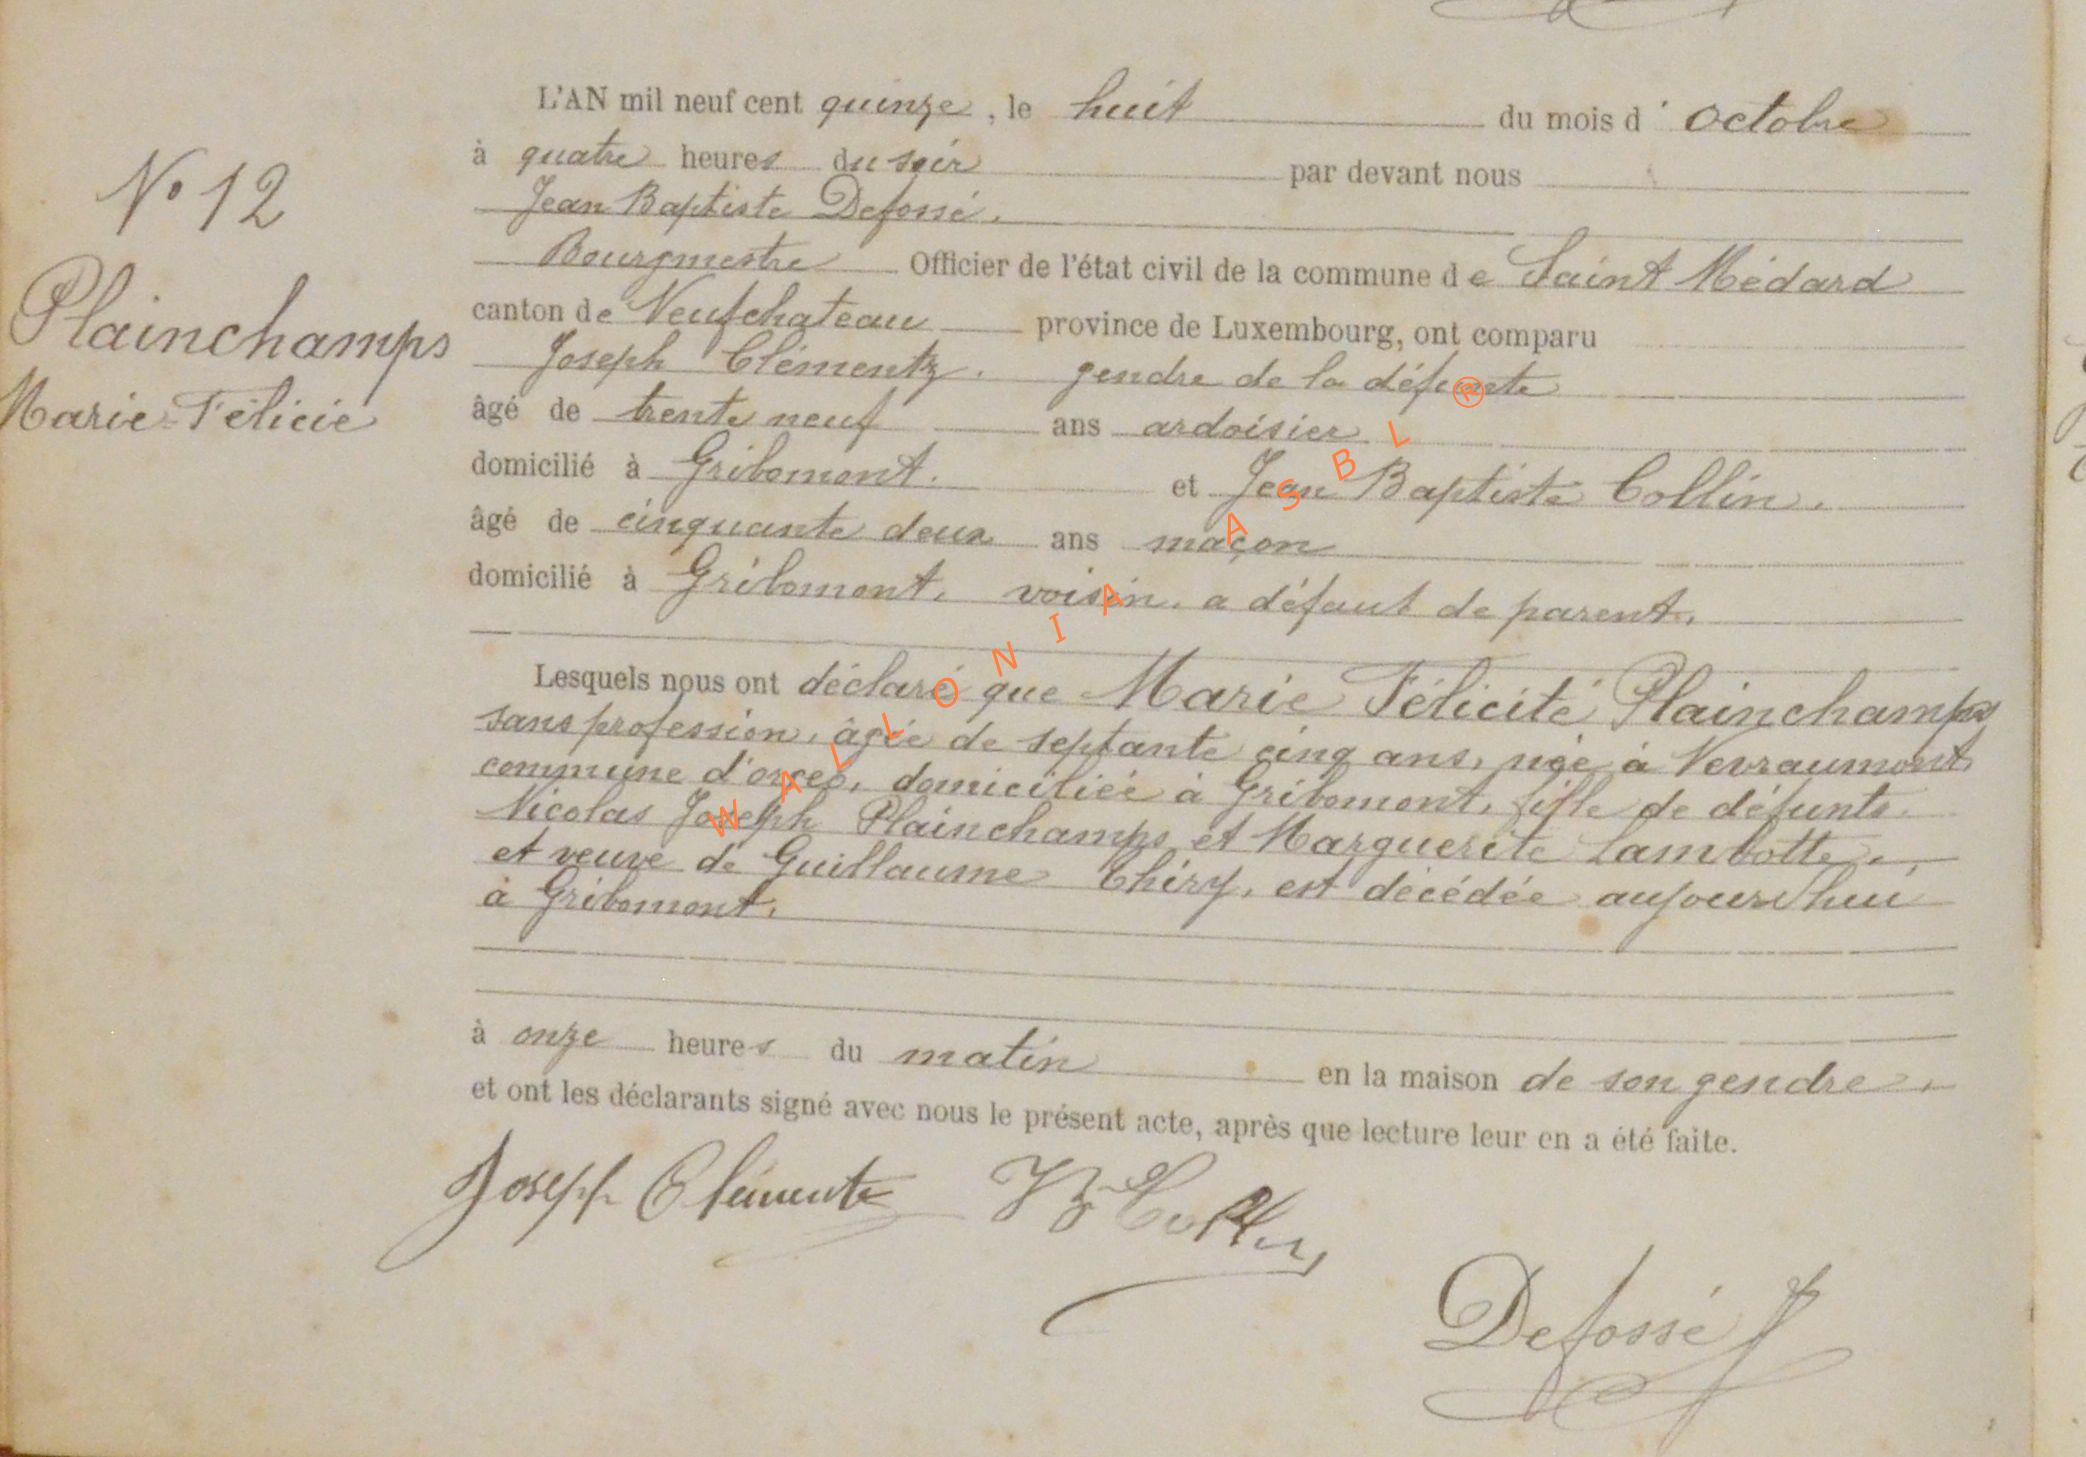 L'AN mil neuf cent quinze, le huit du mois d'octobre
à quatre heures du soir par devant nous
Jean Baptiste Defossé.
Bourgmestre Officier de l'état civil de la commune de Saint Médard
canton de Neufchateau province de Luxembourg, ont comparu
Joseph Clémentz. gendre de la défunte
âgé de trente neuf ans ardoisier
domicilié à Gribomont. et Jean Baptiste Collin.
âgé de cinquante deux ans maçon
domicilié à Gribomont, voisin. a défaut de parent.
Lesquels nous ont déclaré que Marie Félicité Plainchamps
sans profession, âgée de septante cinq ans, née à Nevraumont,
commune d'orgeo, domiciliée à Gribomont, fille de défunts.
Nicolas Joseph Plainchamps et Marguerite Lambotte.
et veuve de Guillaume Thiry, est décédée aujourd'hui
à Gribomont.
à onze heures du matin en la maison de son gendre.
et ont les déclarants signé avec nous le présent acte, après que lecture leur en a été faite.
Joseph Clémentz JB Collin
Defossé
N° 12
Plainchamps
Marie-Félicie
WALLONIA ASBL ®